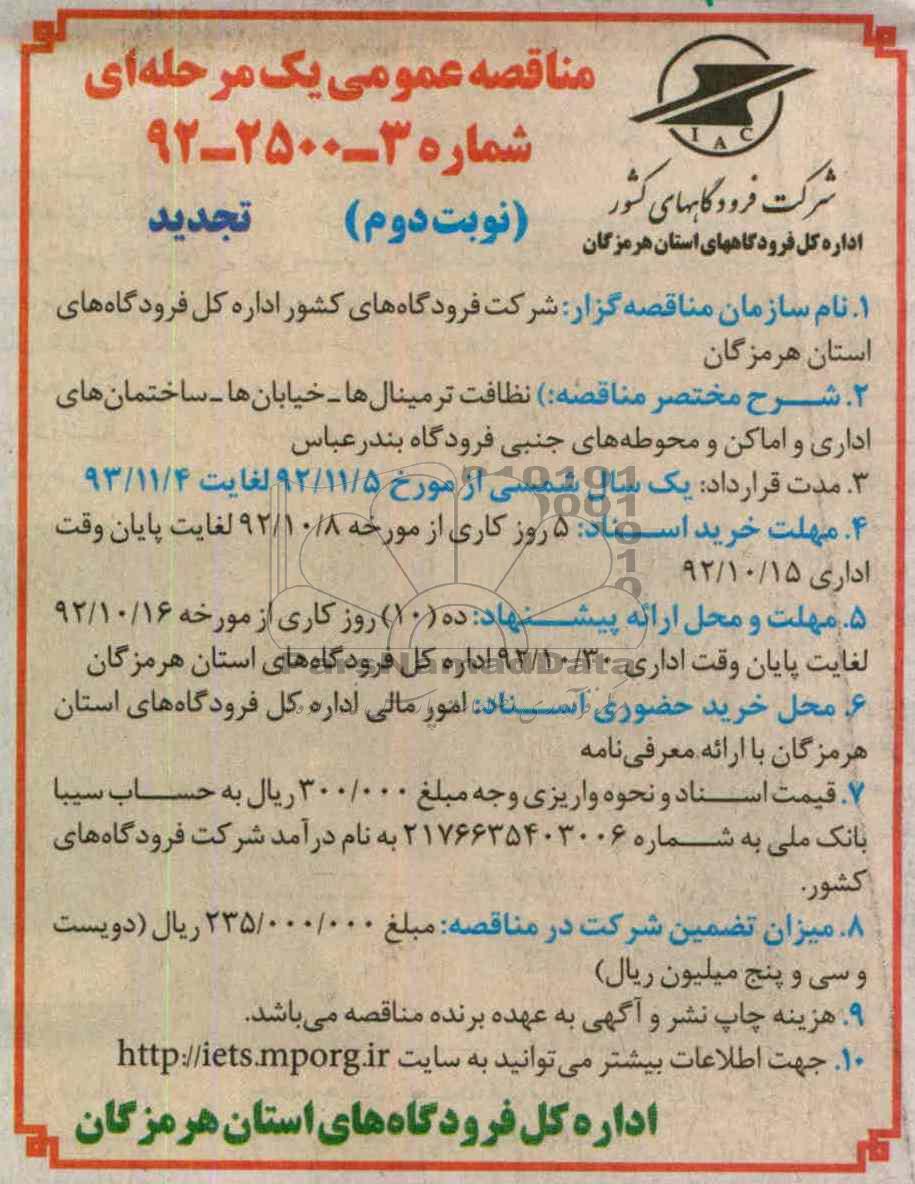 مناقصه عمومی یک مرحله‌ای
شماره ۳-۲۵۰۰-۹۲
(نوبت دوم) تجدید
IAC
شرکت فرودگاههای کشور
اداره کل فرودگاههای استان هرمزگان
۱. نام سازمان مناقصه گزار: شرکت فرودگاه‌های کشور اداره کل فرودگاه‌های
استان هرمزگان
۲. شرح مختصر مناقصه:) نظافت ترمینال‌ها ـ خیابان‌ها ـ ساختمان‌های
اداری و اماکن و محوطه‌های جنبی فرودگاه بندرعباس
۳. مدت قرارداد: یک سال شمسی از مورخ ۹۲/۱۱/۵ لغایت ۹۳/۱۱/۴
۴. مهلت خرید اسناد: ۵ روز کاری از مورخه ۹۲/۱۰/۸ لغایت پایان وقت
اداری ۹۲/۱۰/۱۵
۵. مهلت و محل ارائه پیشنهاد: ده (۱۰) روز کاری از مورخه ۹۲/۱۰/۱۶
لغایت پایان وقت اداری ۹۲/۱۰/۳۰ اداره کل فرودگاه‌های استان هرمزگان
ParsNamadData
۶. محل خرید حضوری اسناد: امور مالی اداره کل فرودگاه‌های استان
هرمزگان با ارائه معرفی‌نامه
۷. قیمت اسناد و نحوه واریزی وجه مبلغ ۳۰۰/۰۰۰ ریال به حساب سیبا
بانک ملی به شماره ۲۱۷۶۶۳۵۴۰۳۰۰۶ به نام درآمد شرکت فرودگاه‌های
کشور.
۸. میزان تضمین شرکت در مناقصه: مبلغ ۲۳۵/۰۰۰/۰۰۰ ریال (دویست
و سی و پنج میلیون ریال)
۹. هزینه چاپ نشر و آگهی به عهده برنده مناقصه می‌باشد.
۱۰. جهت اطلاعات بیشتر می‌توانید به سایت http://iets.mporg.ir
اداره کل فرودگاه‌های استان هرمزگان